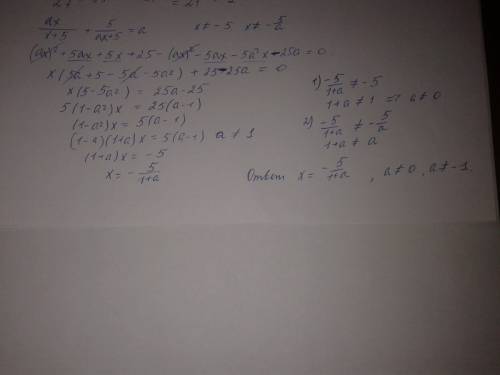 ax/(x+5) + 5/(ax+5) = a   x ≠ -5   x ≠ -5/a
(ax)² + 5ax + 5x + 25 - (ax)² - 5ax - 5a²x - 25a = 0
x(5a + 5 - 5a - 5a²) + 25 - 25a = 0
x(5 - 5a²) = 25a - 25
5(1-a²)x = 25(a-1)
(1-a²)x = 5(a-1)
(1-a)(1+a)x = 5(a-1)   a ≠ 1
(1+a)x = -5
x = -5/(1+a)
1) -5/(1+a) ≠ -5
1+a ≠ 1 => a ≠ 0
2) -5/(1+a) ≠ -5/a
1+a ≠ a
Ответ x = -5/(1+a), a ≠ 0, a ≠ -1.